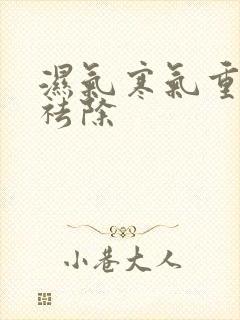 濕氣寒氣重
祛除
小巷大人